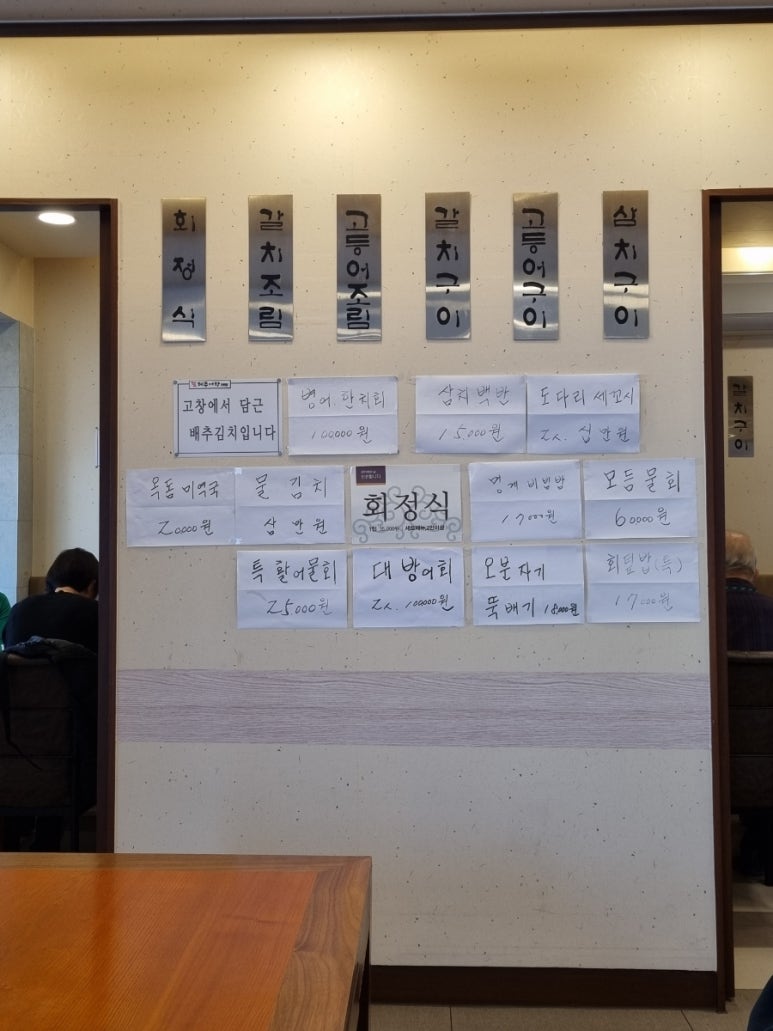 회정식
갈치조림
고등어조림
갈치구이
고등어구이
삼치구이
갈치구이
고창에서 담근
배추김치입니다
병어 한치회
100000원
삼치백반
15.000원
도다리 세꼬시
2人. 십만원
옥돔미역국
20000원
물김치
삼만원
회정식
멍게비빔밥
17000원
모듬물회
60000원
특활어물회
25.000원
대방어회
2人. 100000원
오분자기
뚝배기 18000원
회덮밥(특)
17000원